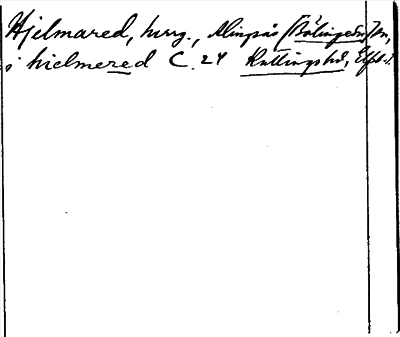 Hjelmared, herrg., Alingsås (Bälinge sn)
i hielmered C. 24 Kullings hd, Elfsb. l.